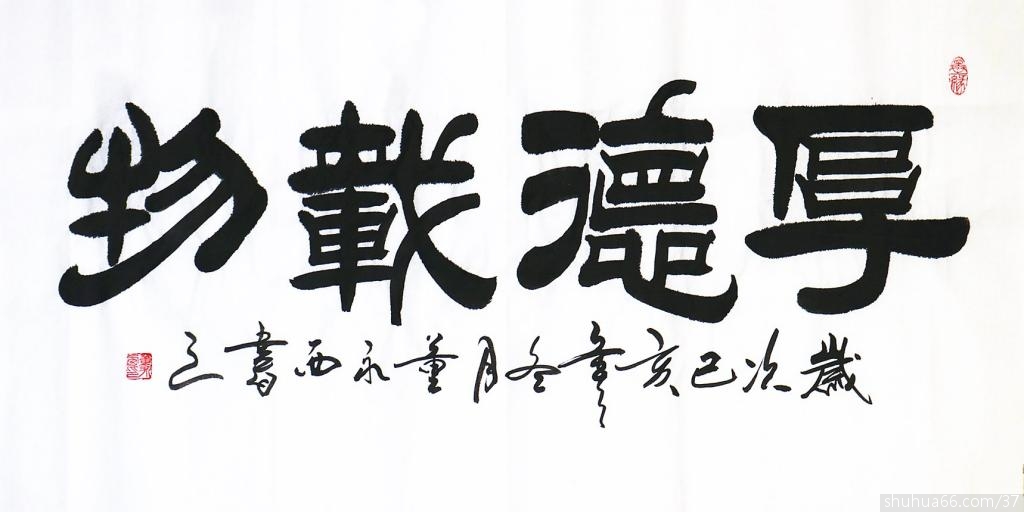 厚德載物
歲次己亥年冬月董永西書之
shuhua66.com/37